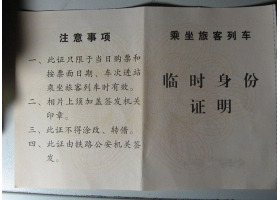 注意事项
一、此证只限于当日购票和
按票面日期、车次进站
乘坐旅客列车时有效。
二、相片上须加盖签发机关
印章。
三、此证不得涂改、转借。
四、此证由铁路公安机关签
发。
乘坐旅客列车
临时身份
证明